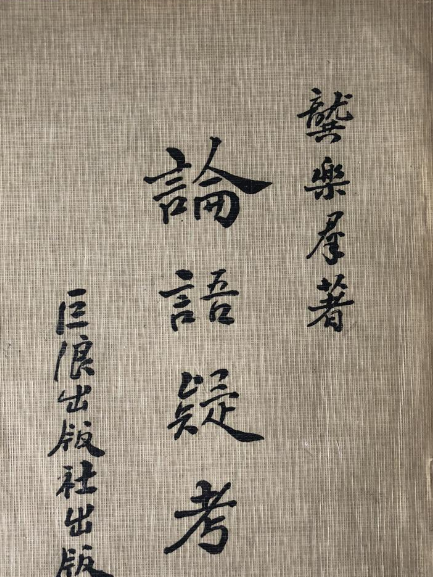 龔樂羣著
論語疑考
巨浪出版社出版